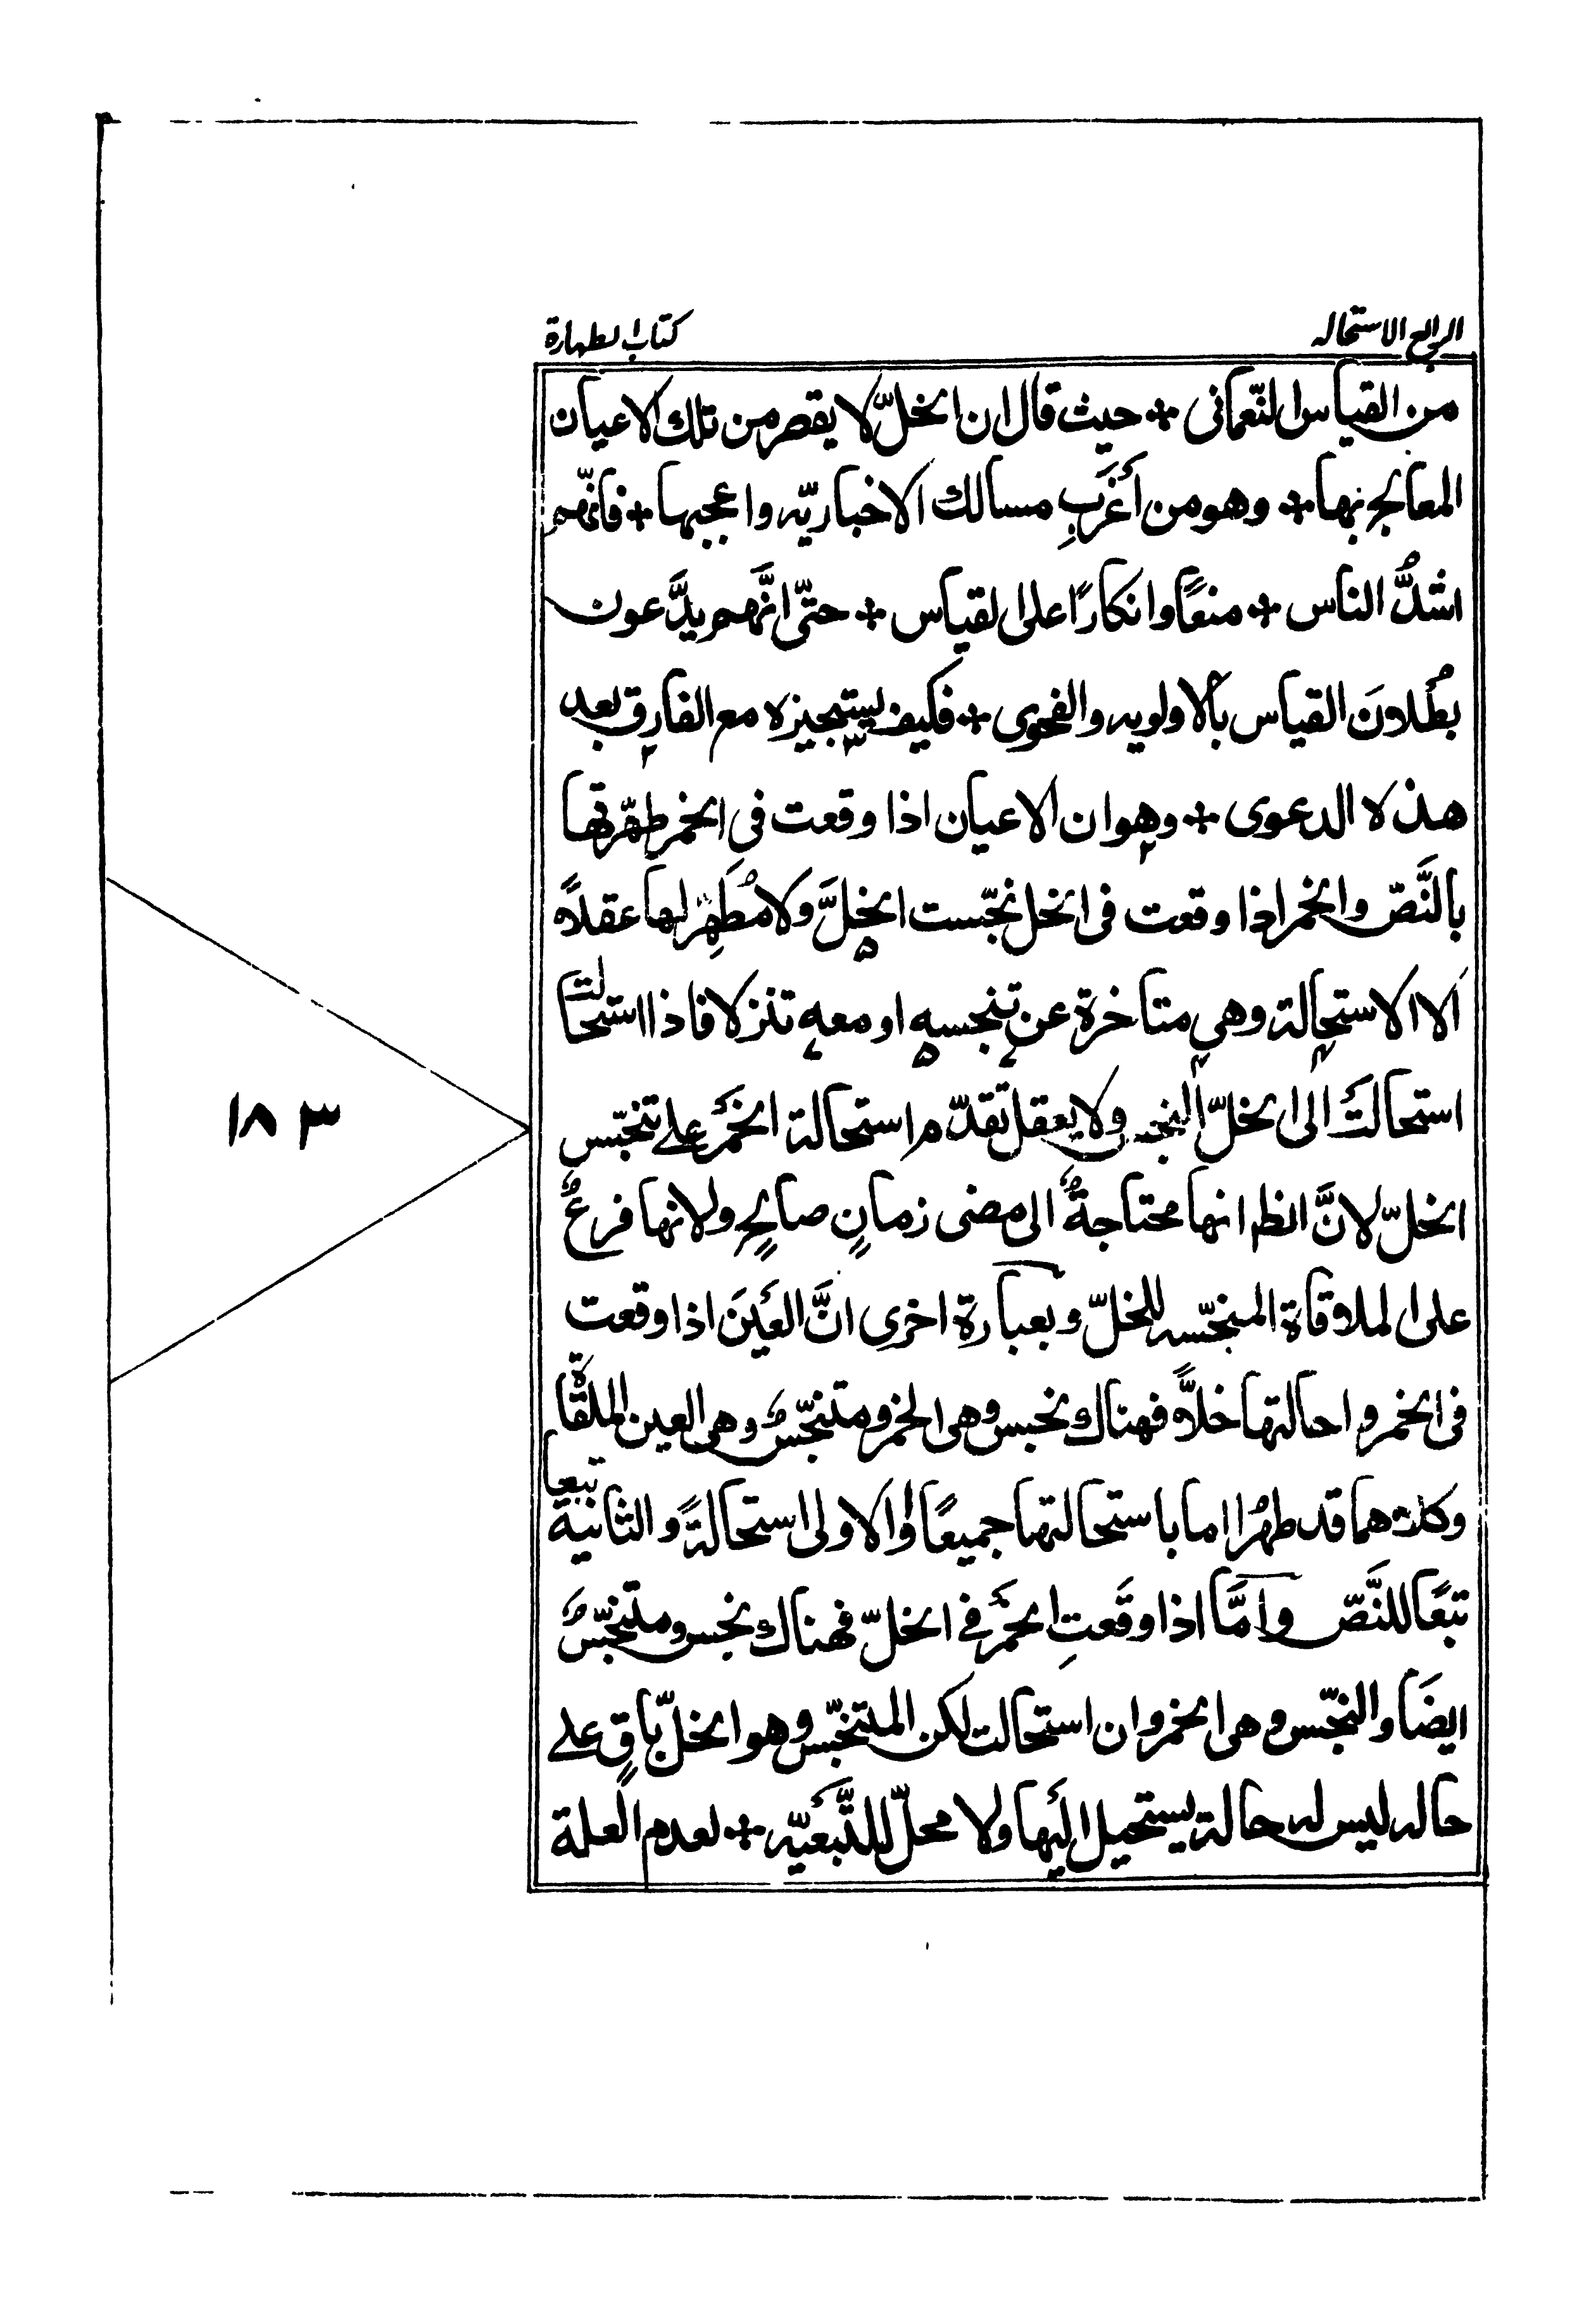 الرابع الاستحاله
كتاب الطهارة
من القياس النّعمانى ٭ حيث قال ان الخلّ لا يقصر من تلك الاعيان
المعالج بها ٭ وهو من أَغرَبِ مسالك الاخباريّه واعجبها ٭ فانّهم
اشدُّ الناس ٭ منعًا وانكارًا على القياس ٭ حتّى انَّهم يدَّعون
بُطلانَ القياس بالاولويه والفحوى ٭ فكيف يستجيزه مع الفارق بعد
هذه الدعوى ٭ وهو ان الاعيان اذا وقعت فى الخمر طهّرتها
بالنَّصّ والخمر اذا وقعت فى الخل نجّست الخلَّ ولا مُطَهِّر لها عقلًا
الا الاستحالة وهى متاخرة عن تنجسه او معه تنزلا فاذا استحالت
استحالَت الى الخلّ النجس ولا يعقل تقدّم استحالة الخَمر على تنجّس
الخلّ لانَّ الظ انها محتاجةٌ الى مضى زمانٍ صالحٍ ولانها فرعُ
على الملاقاة المنجّسه للخلّ وبعبارة اخرى انَّ العَينَ اذا وقعت
فى الخمر واحالتها خلًّا فهناك نجس وهى الخمر ومتنجّسٌ وهى العين الملقاة
وكلاهما قد طهُرا اما باستحالتها جميعًا او الاولى استحالةً والثانية تبعا
تبعًا للنَّصّ وامَّا اذا وقَعتِ الخمَر فى الخلّ فهناك نجس ومتنجّسٌ
ايضَا والنجّس وهى الخمر وان استحالت لكن المتنجّس وهو الخلّ باقٍ على
حاله ليس له حالة يستحيل اليَها ولا محلّ للتَّبَعيّه ٭ لعدم العلة
١٨٣